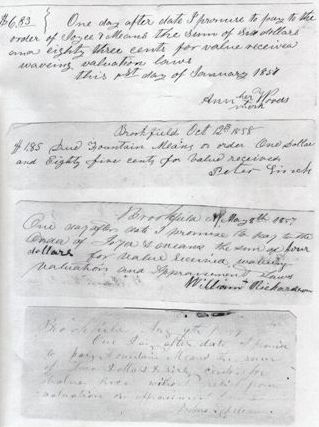 $6.83 { One day after date I promise to pay to the
order of Joyce & Means the sum of Six dollars
and eighty three cents for value received
waveing valuation laws
this 1st day of January 1858
Ann her Woods
mark
Brookfield Oct 12th 1858
$1.85 Due Fountain Means or order One Dollar
and Eighty five cents for Value received
Peter
Brookfield May 8th 1857
One day after date I promise to pay to the
Order of Joyce & means the sum of four
dollars for value received waiving
valuation and Appraisement Laws
William Richardson
One day after date I promise
to pay Fountain Means the sum
of Dollars & cents for
value without relief from
valuation or appraisement laws